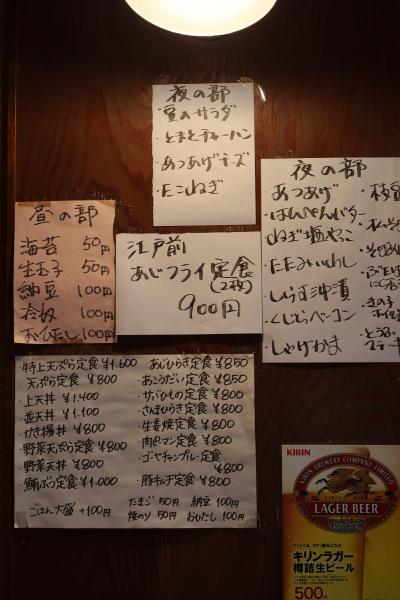 夜の部
豆のサラダ
・とまとチャーハン
・あつあげチーズ
・たこねぎ
昼の部
海苔 50円
生玉子 50円
納豆 100円
冷奴 100円
おひたし 100円
江戸前
あじフライ定食
(2枚)
900円
夜の部
・あつあげ
・はんぺんバター
・ねぎ塩やっこ
・たたみいわし
・しらす沖漬
・くじらベーコン
・しゃけかま
・特上天ぷら定食 ¥1.600
・天ぷら定食 ¥800
・上天丼 ¥1.400
・並天丼 ¥1.100
・かき揚丼 ¥800
・野菜天ぷら定食 ¥800
・野菜天丼 ¥800
・鮪ぶつ定食 ¥1.000
・ごはん大盛 +100円
あじひらき定食 ¥850
・あこうだい定食 ¥850
・サバひもの定食 ¥800
・さんまひらき定食 ¥800
・生姜焼定食 ¥800
・肉ピーマン定食 ¥800
・ゴーヤチャンプルー定食
¥800
・豚キムチ定食 ¥800
たまご 50円 納豆 100円
焼のり 50円 おひたし 100円
KIRIN
KIRIN BREWERY COMPANY, LIMITED
LAGER BEER
キリンラガー
樽詰生ビール
500円